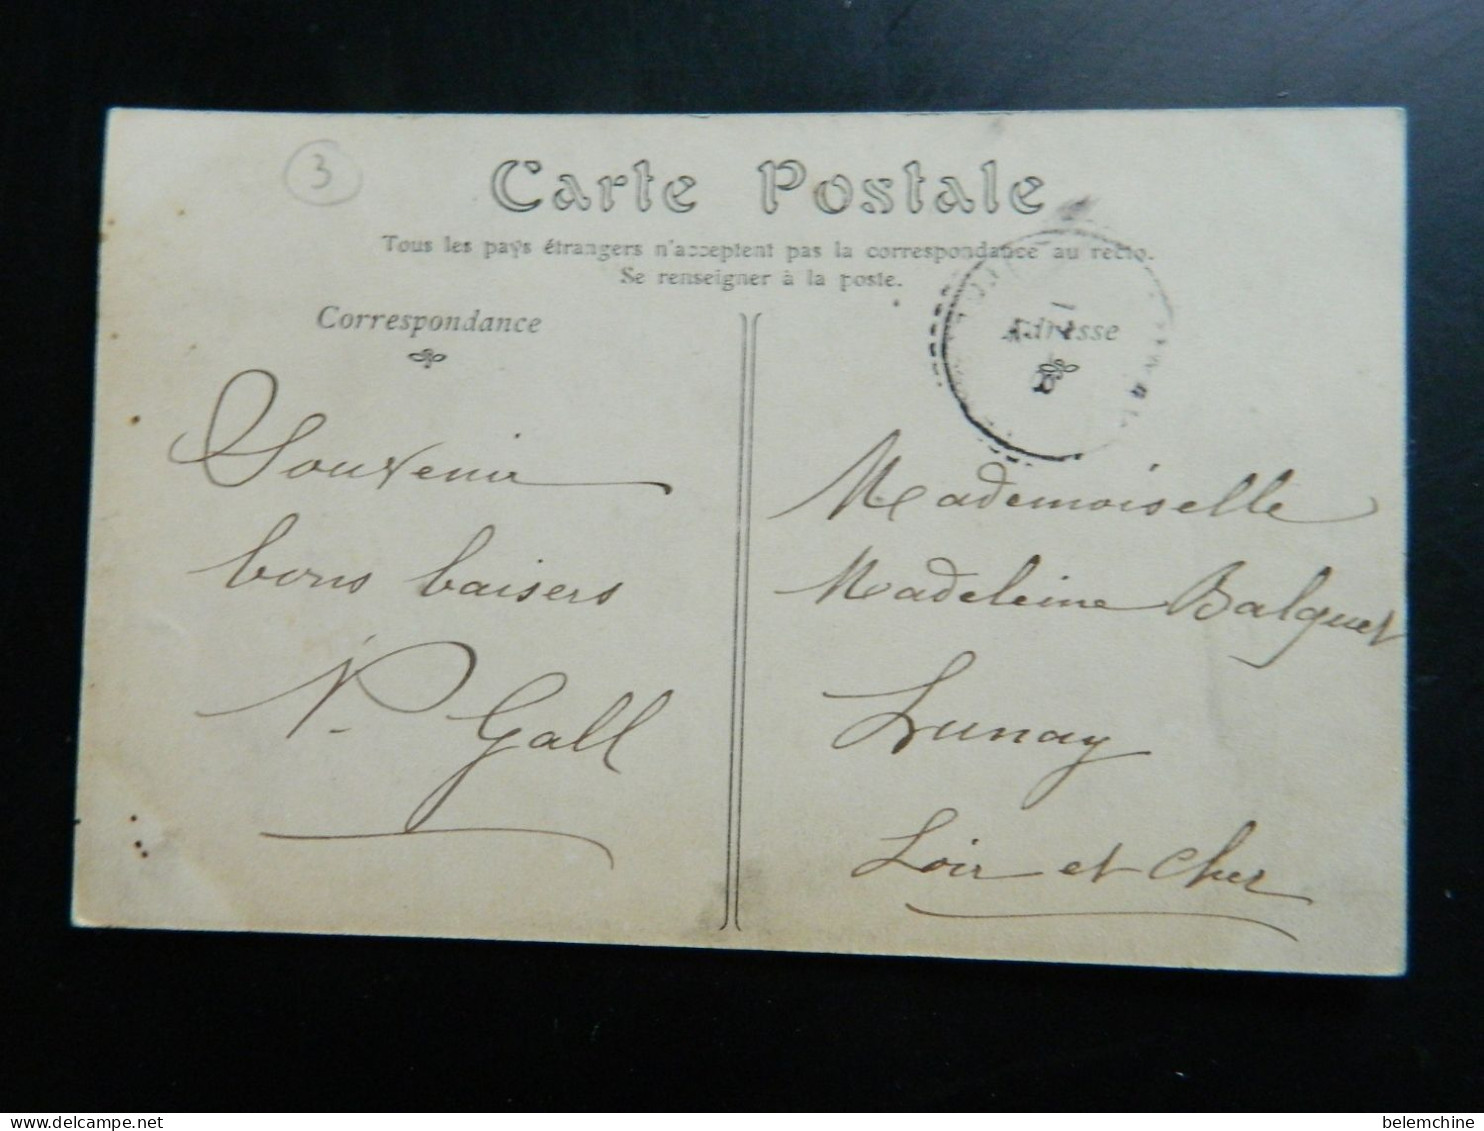 3
Carte Postale
Tous les pays étrangers n'acceptent pas la correspondance au recto.
Se renseigner à la poste.
Correspondance
Souvenir
bons baisers
P. Gall
Adresse
Mademoiselle
Madeleine Balguet
Lunay
Loir et Cher
delcampe.net
belemchine